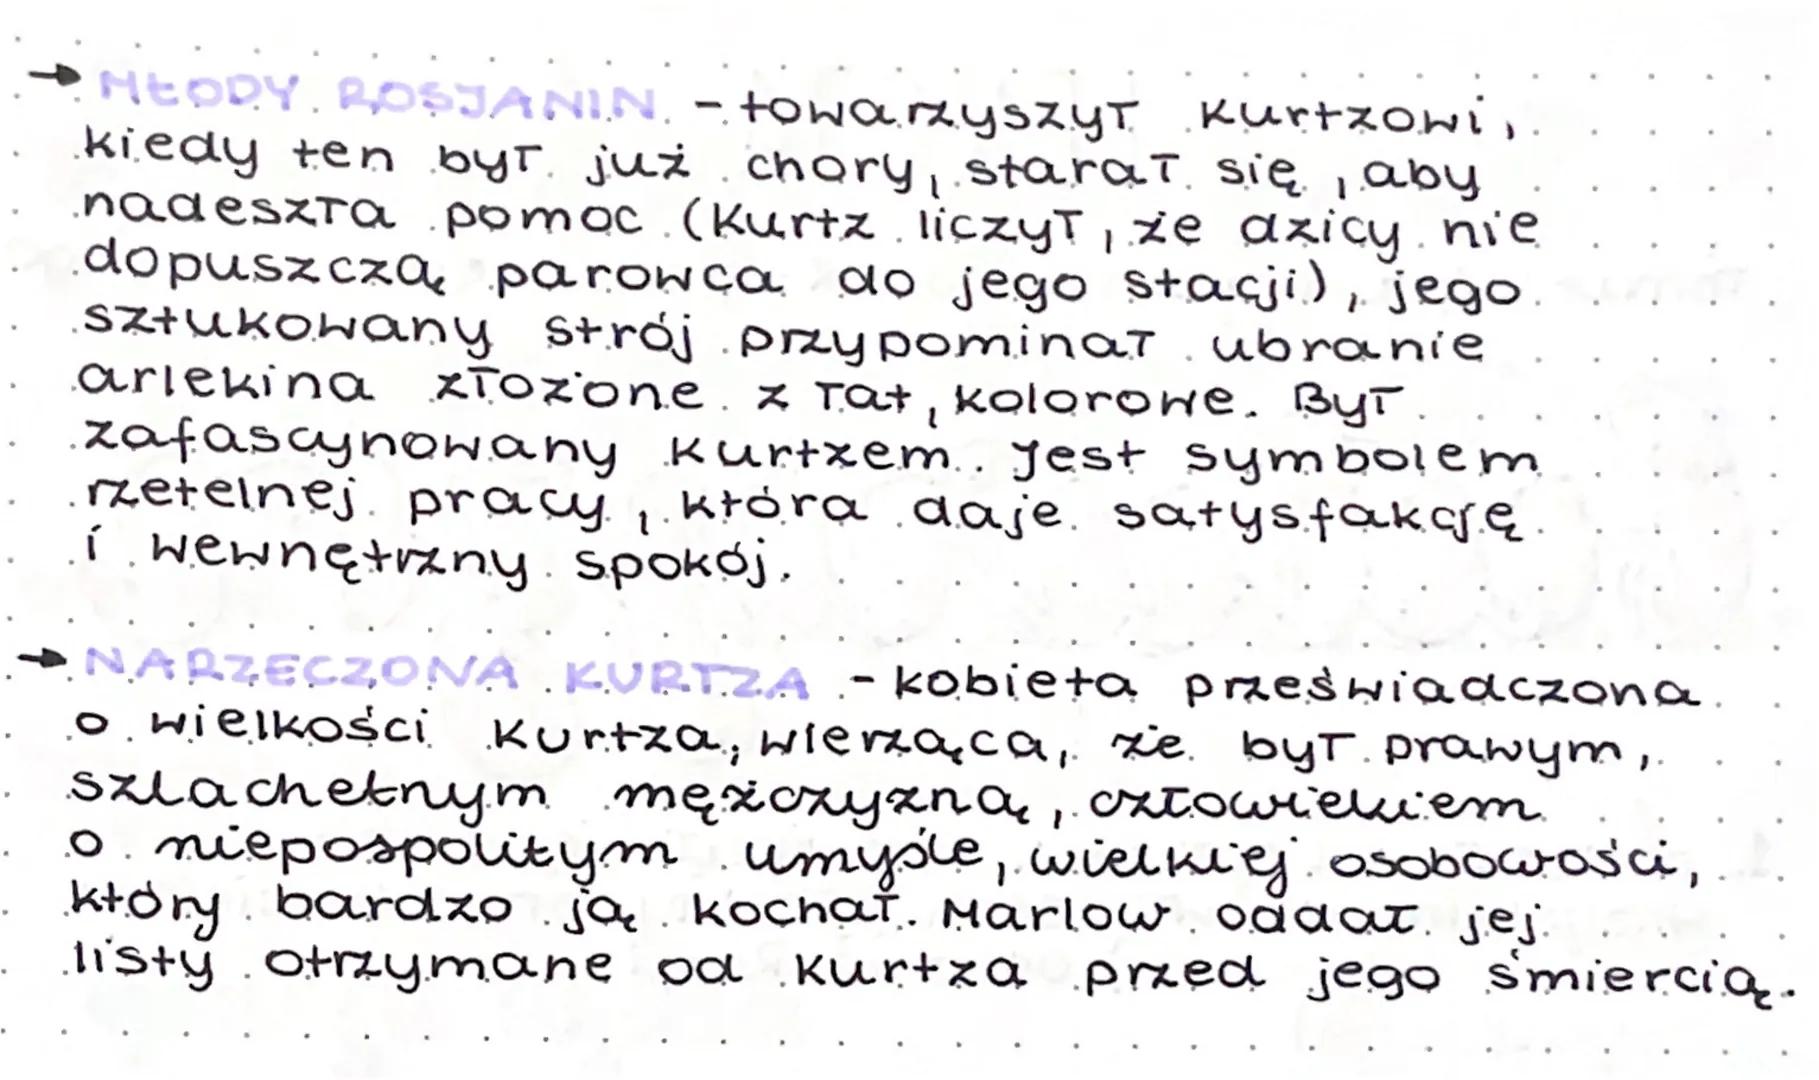 → MŁODY ROSJANIN - towarzyszył Kurtzowi,
kiedy ten był już chory, starał się, aby
nadeszła pomoc (Kurtz liczył, że dzicy nie
dopuszczą parowca do jego stacji), jego
sztukowany strój przypominał ubranie
arlekina złożone z łat, kolorowe. Był
zafascynowany Kurtzem. Jest symbolem
rzetelnej pracy, która daje satysfakcję
i wewnętrzny spokój.
→ NARZECZONA KURTZA - kobieta przeświadczona
o wielkości Kurtza, wierząca, że był prawym,
szlachetnym mężczyzną, człowiekiem
o niepospolitym umyśle, wielkiej osobowości,
który bardzo ją kochał. Marlow oddał jej
listy otrzymane od Kurtza przed jego śmiercią.